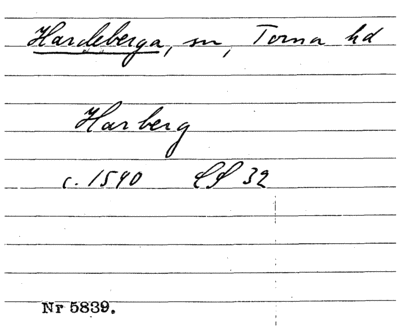 Hardeberga, sn, Torna hd
Harberg
c. 1590 LS 32
Nr 5839.